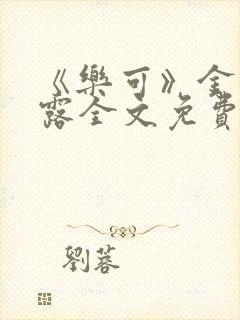 《樂可》金
露全文免費
劉蓉